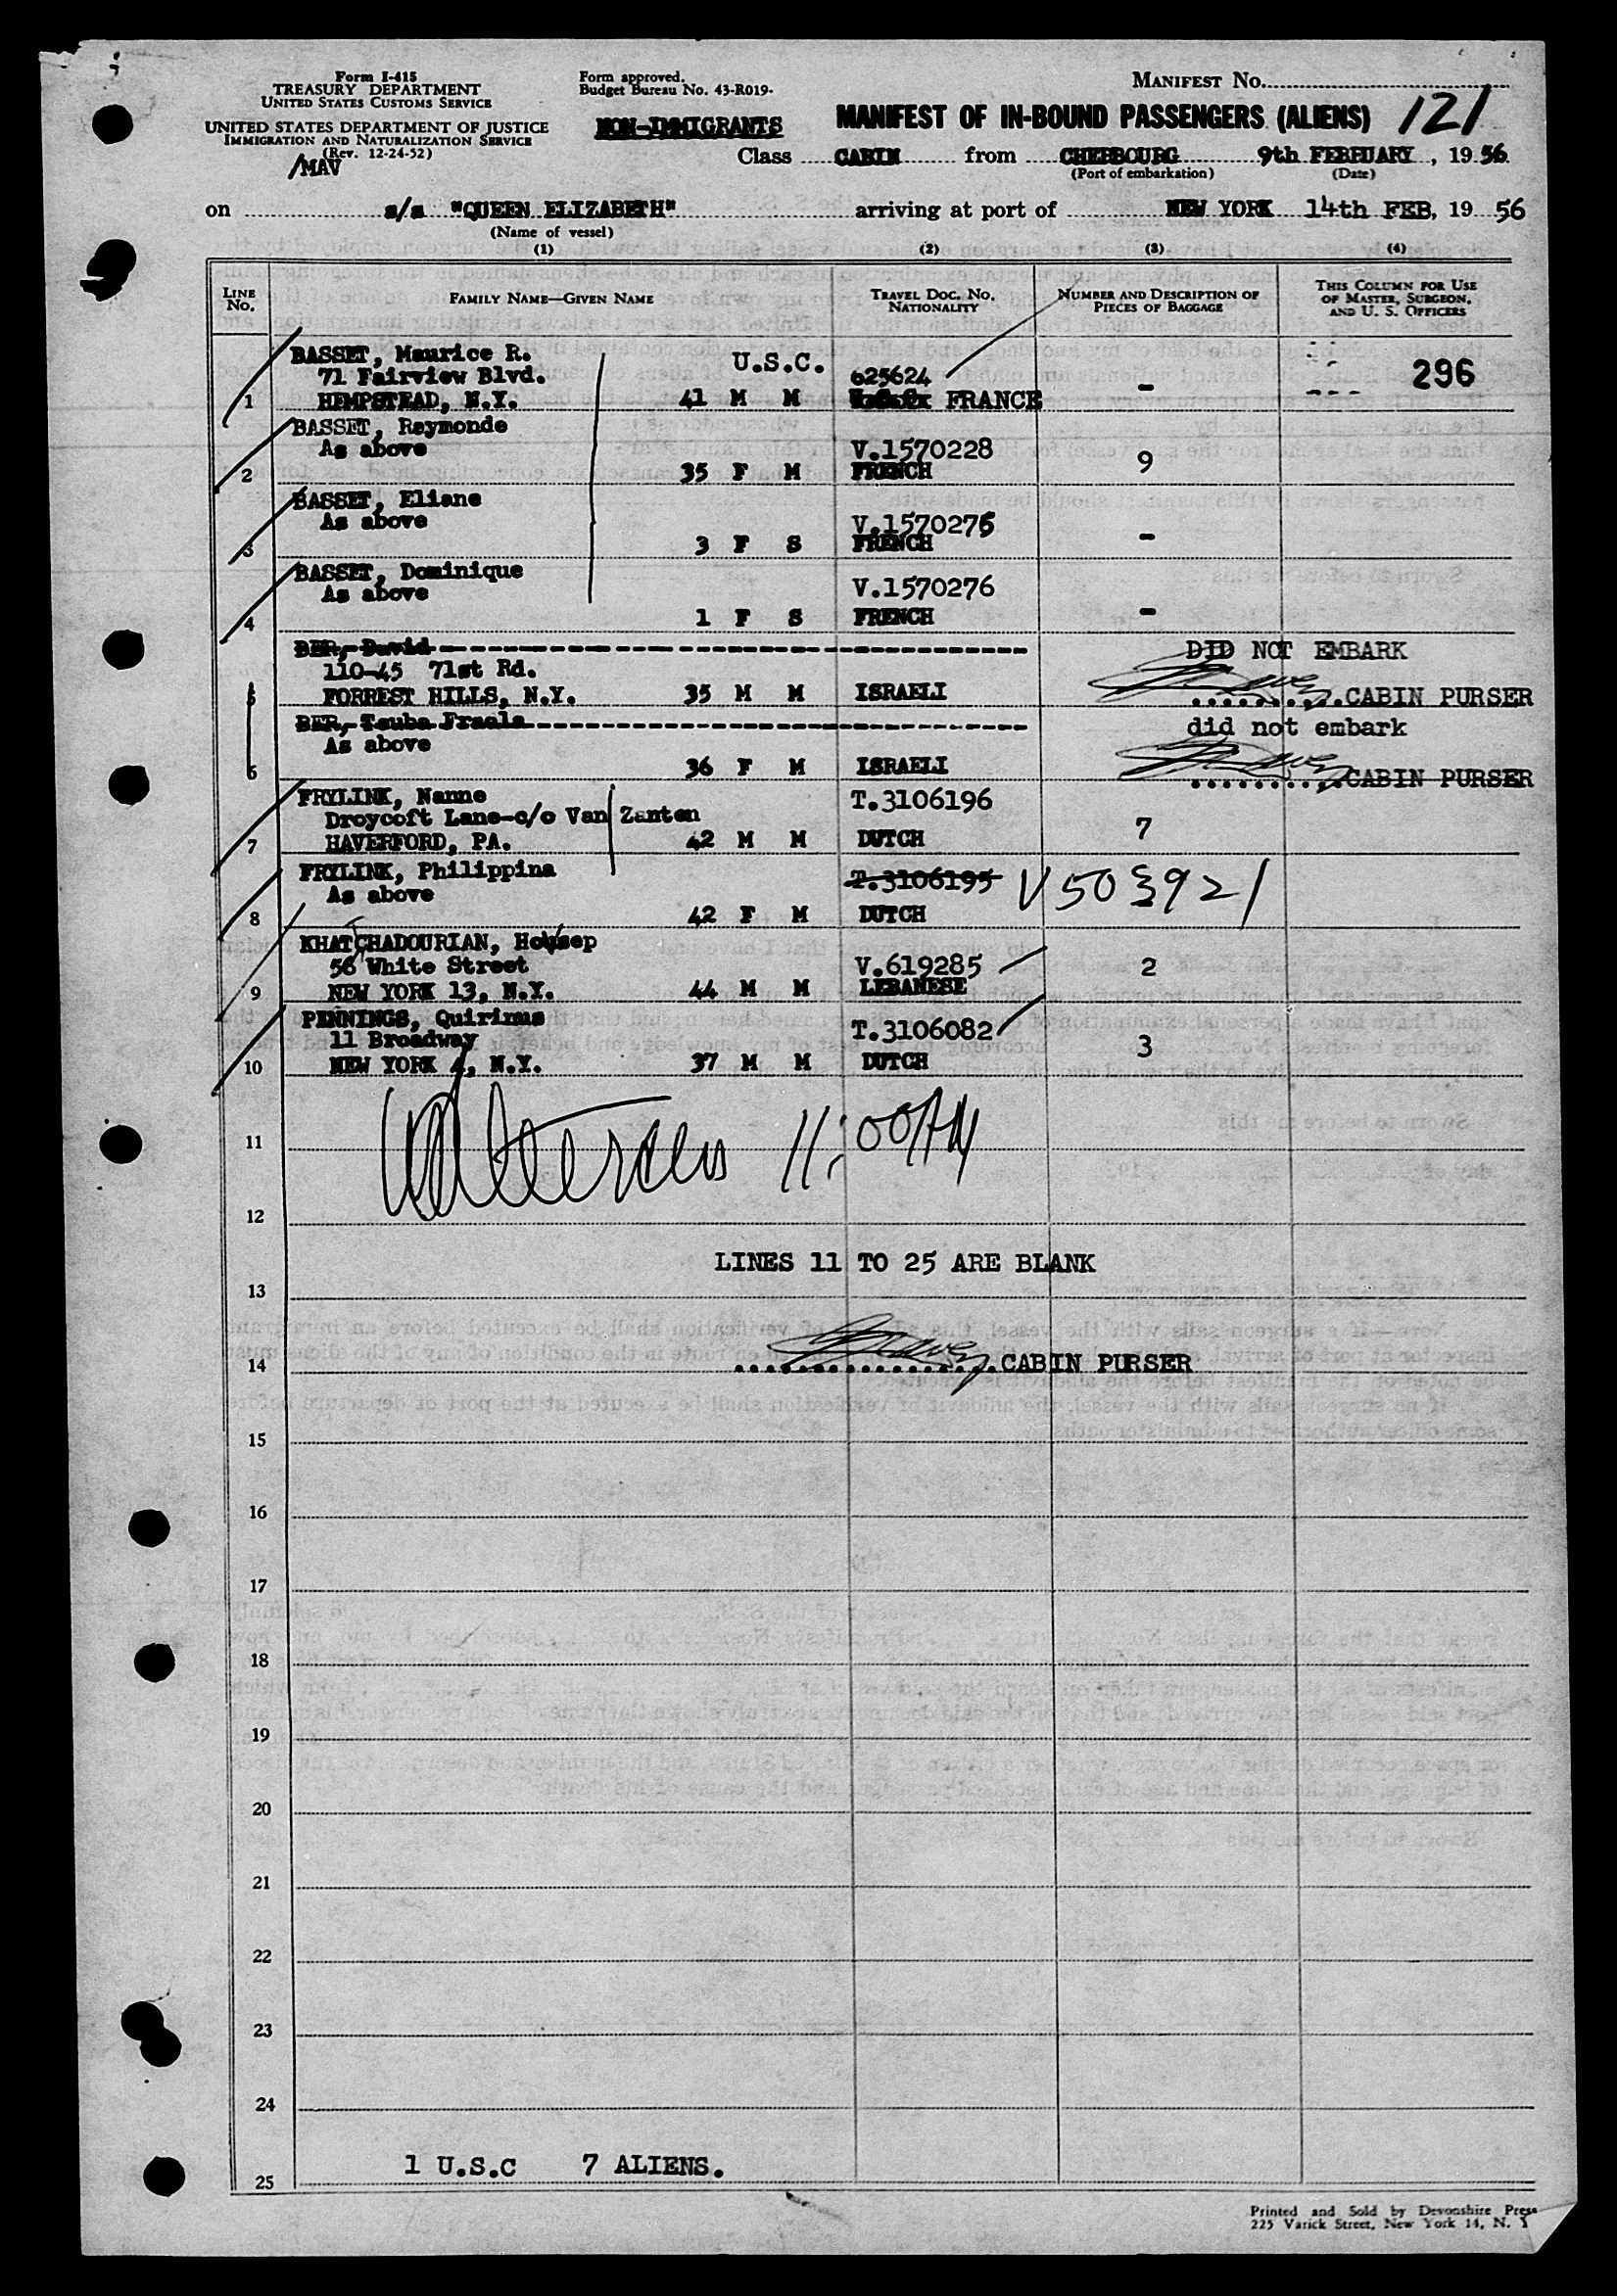 Form I-415
TREASURY DEPARTMENT
UNITED STATES CUSTOMS SERVICE
UNITED STATES DEPARTMENT OF JUSTICE
IMMIGRATION AND NATURALIZATION SERVICE
(Rev. 12-24-52)
/MAV
Form approved.
Budget Bureau No. 43-R019-
NON-IMMIGRANTS
MANIFEST NO.
MANIFEST OF IN-BOUND PASSENGERS (ALIENS) 121
Class CABIN from CHERBOURG 9th FEBRUARY, 1956
(Port of embarkation) (Date)
on s/s "QUEEN ELIZABETH" arriving at port of NEW YORK 14th FEB, 19 56
(Name of vessel)
(1) (2) (3) (4)
LINE NO. FAMILY NAME—GIVEN NAME TRAVEL DOC. NO. NATIONALITY NUMBER AND DESCRIPTION OF PIECES OF BAGGAGE THIS COLUMN FOR USE OF MASTER, SURGEON, AND U. S. OFFICERS
BASSET, Maurice R. U.S.C.
71 Fairview Blvd. 625624 - 296
1 HEMPSTEAD, N.Y. 41 M M FRANCE
BASSET, Raymonde
As above V.1570228 9
2 35 F M FRENCH
BASSET, Eliane
As above V.1570275 -
3 3 F S FRENCH
BASSET, Dominique
As above V.1570276
4 1 F S FRENCH -
BER, David DID NOT EMBARK
110-45 71st Rd.
5 FORREST HILLS, N.Y. 35 M M ISRAELI CABIN PURSER
BER, Tauba Fraela did not embark
As above
6 36 F M ISRAELI CABIN PURSER
FRYLINK, Nanne T.3106196
Droycoft Lane-c/o Van Zanten 7
7 HAVERFORD, PA. 42 M M DUTCH
FRYLINK, Philippina T.3106195 V503921
As above
8 42 F M DUTCH
KHATCHADOURIAN, Hovsep
56 White Street V.619285 2
9 NEW YORK 13, N.Y. 44 M M LEBANESE
PENNINGS, Quirinus T.3106082
11 Broadway 3
10 NEW YORK 4, N.Y. 37 M M DUTCH
11 11:00AM
12
LINES 11 TO 25 ARE BLANK
13
14 CABIN PURSER
15
16
17
18
19
20
21
22
23
24
1 U.S.C 7 ALIENS.
25
Printed and Sold by Devonshire Press
225 Varick Street, New York 14, N. Y